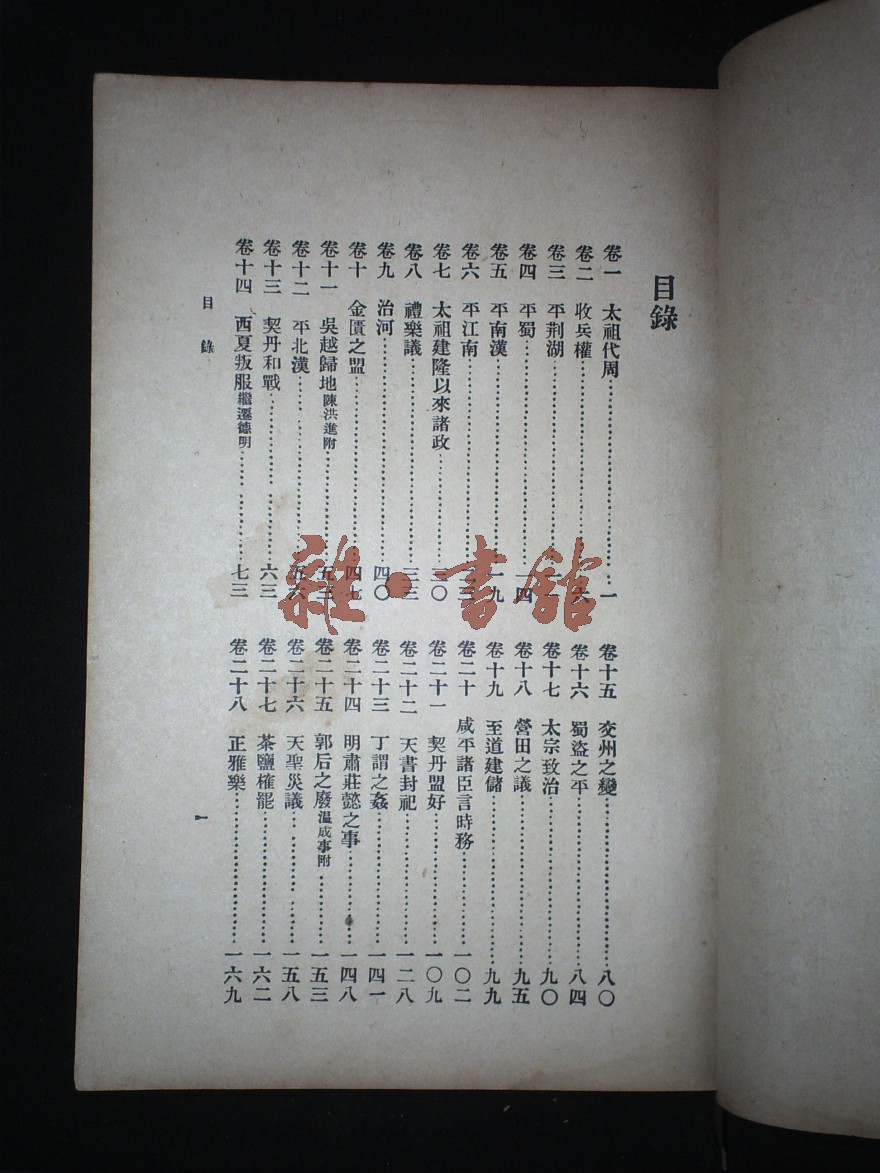 目錄
卷一 太祖代周 一
卷二 收兵權 六
卷三 平荆湖
卷四 平蜀 一四
卷五 平南漢 一九
卷六 平江南
卷七 太祖建隆以來諸政 三〇
卷八 禮樂議 三三
卷九 治河 四〇
卷十 金匱之盟 四七
卷十一 吳越歸地陳洪進附 五三
卷十二 平北漢 五六
卷十三 契丹和戰 六三
卷十四 西夏叛服繼遷德明 七三
卷十五 交州之變 八〇
卷十六 蜀盜之平 八四
卷十七 太宗致治 九〇
卷十八 營田之議 九五
卷十九 至道建儲 九九
卷二十 咸平諸臣言時務 一〇二
卷二十一 契丹盟好 一〇九
卷二十二 天書封祀 一二八
卷二十三 丁謂之姦 一四一
卷二十四 明肅莊懿之事 一四八
卷二十五 郭后之廢溫成事附 一五三
卷二十六 天聖災議 一五八
卷二十七 茶鹽榷罷 一六二
卷二十八 正雅樂 一六九
目錄
一
雜·書館